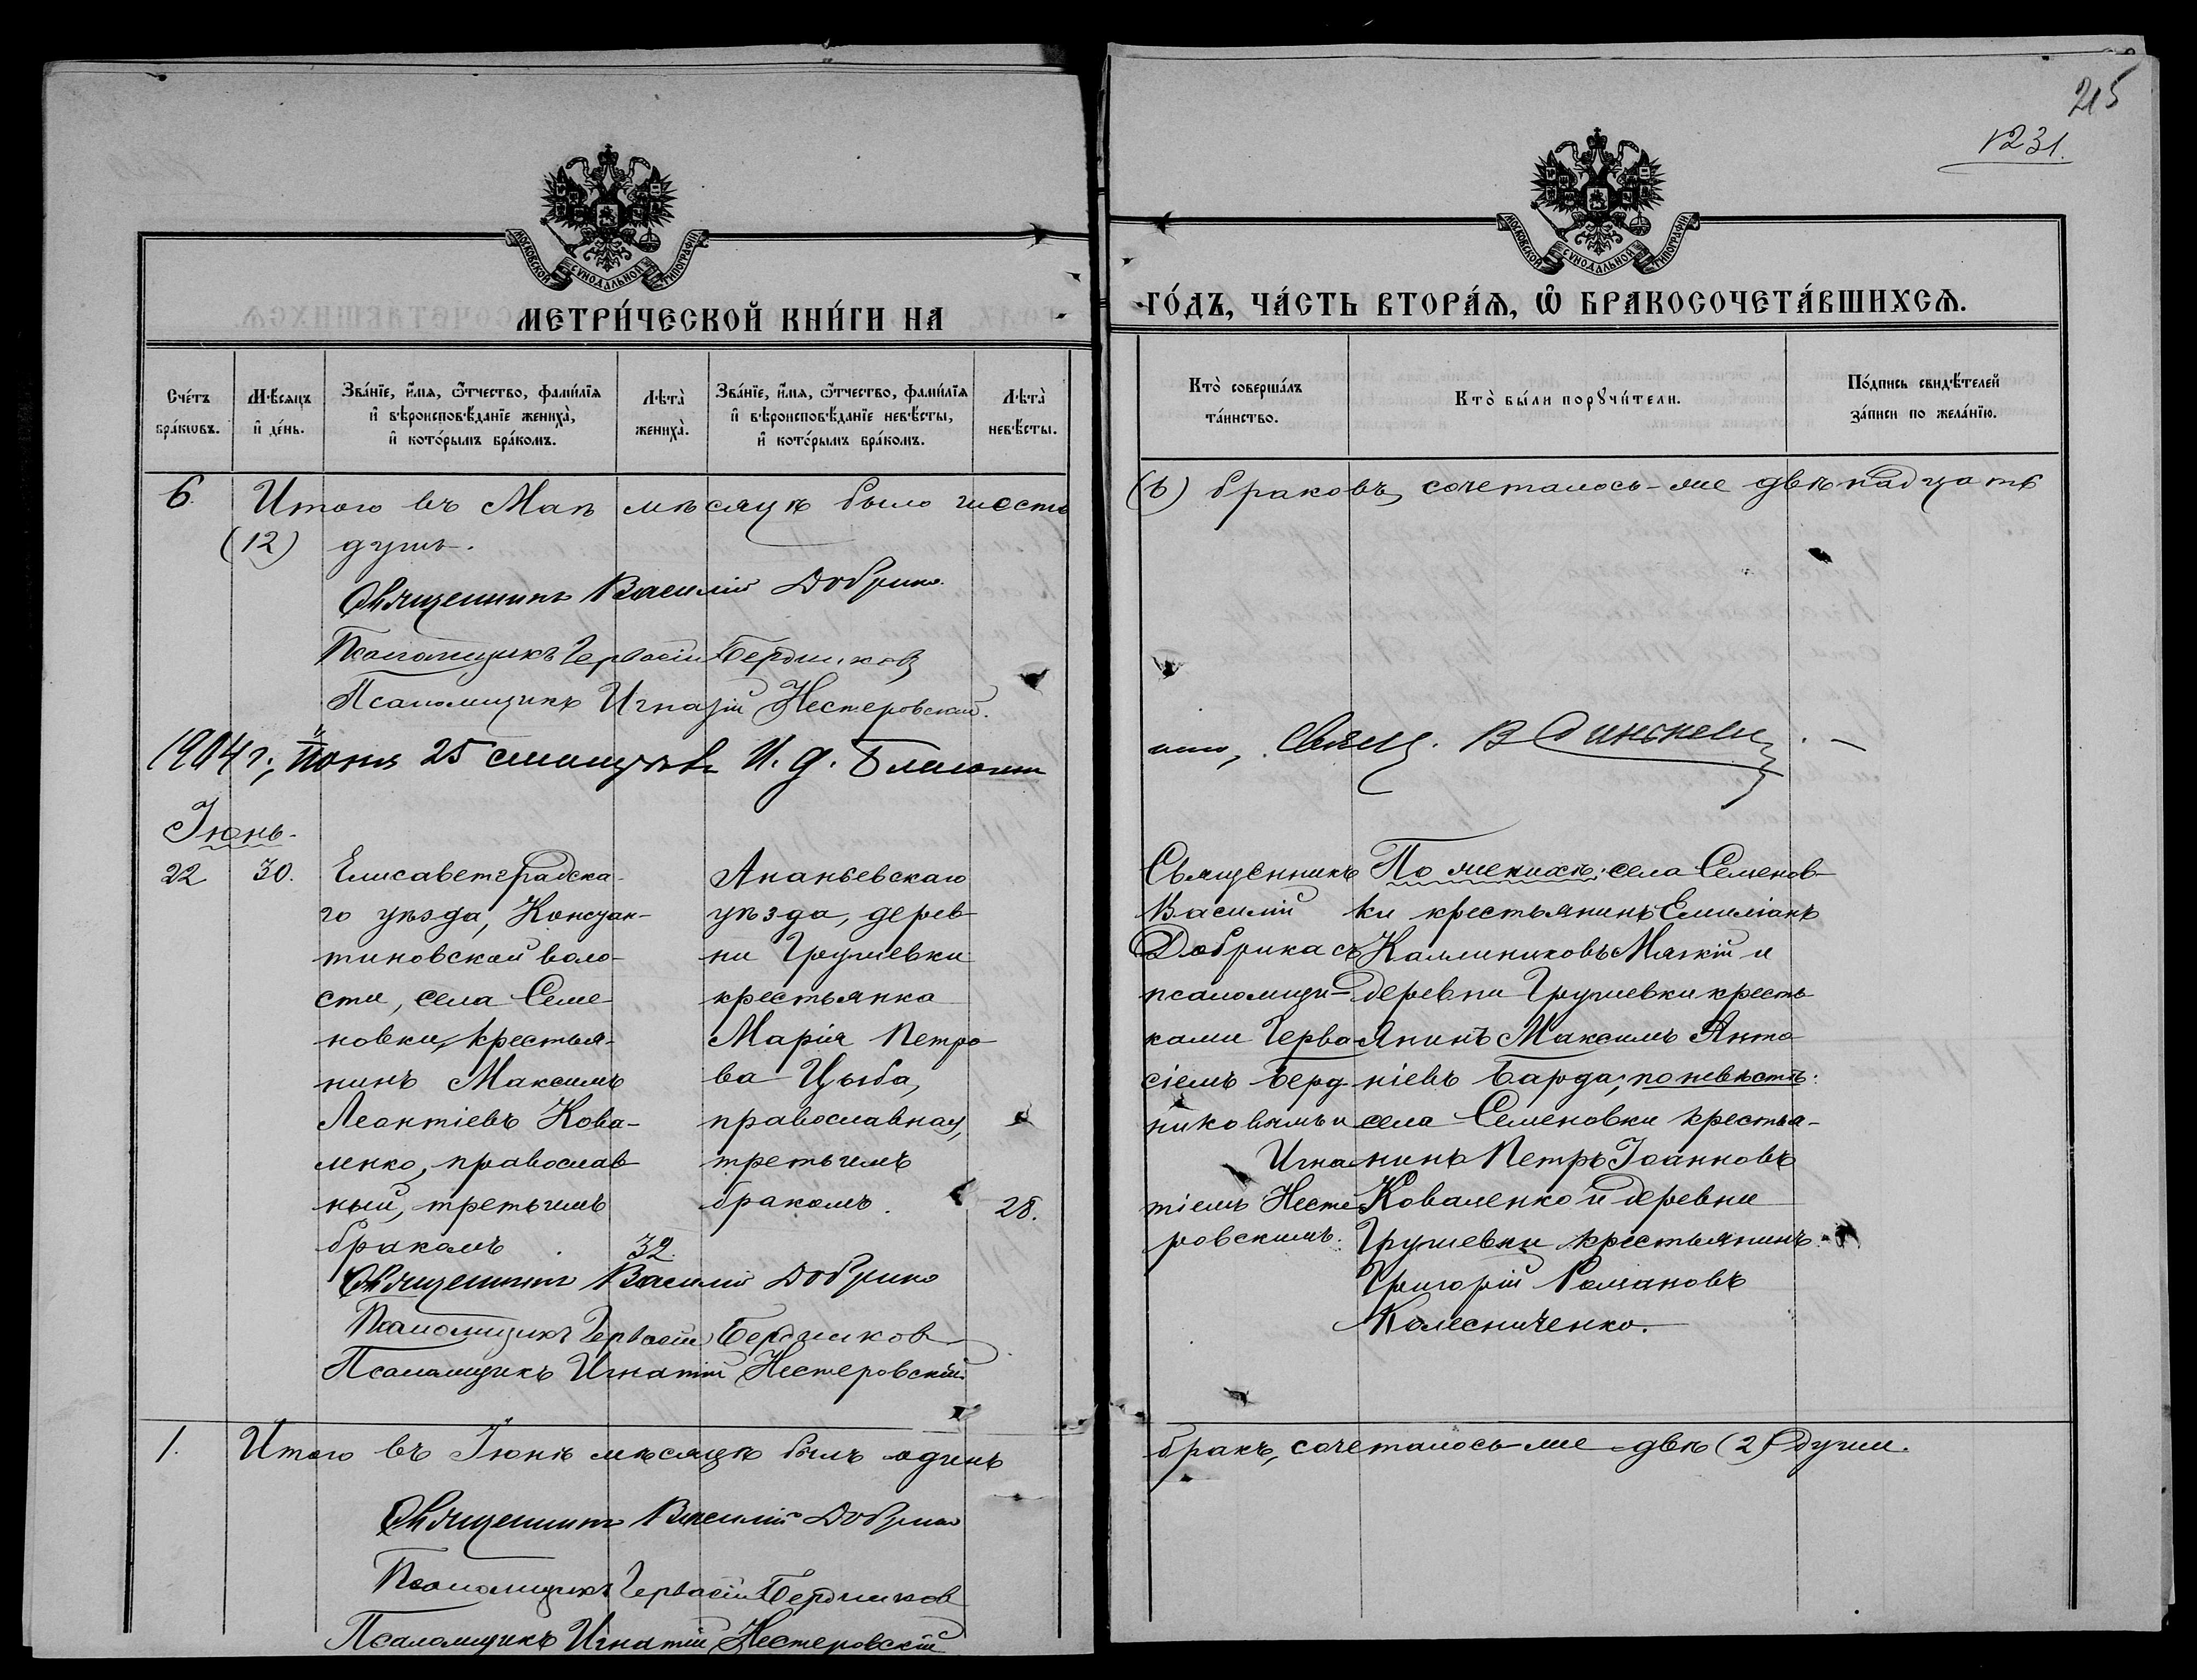 215
1231.
МОСКОВСКОЙ СѴНОДАЛЬНОЙ ТИПОГРАФІИ
МОСКОВСКОЙ СѴНОДАЛЬНОЙ ТИПОГРАФІИ
МЕТРИ́ЧЕСКОЙ КНИ́ГИ НА
ГО́ДЪ, ЧА́СТЬ ВТОРА́Ѧ, Ѽ БРАКОСОЧЕТА́ВШИХСѦ.
Сче́тъ бра́кѡвъ.
Мѣ́сяцъ и҆ де́нь.
Зва́нїе, и҆́мѧ, ѻ҆́тчество, фами́лїѧ
и҆ вѣроисповѣ́данїе жениха̀,
и҆ кото́рымъ бра́комъ.
Лѣта̀ жениха̀.
Зва́нїе, и҆́мѧ, ѻ҆́тчество, фами́лїѧ
и҆ вѣроисповѣ́данїе невѣ́сты,
и҆ кото́рымъ бра́комъ.
Лѣта̀ невѣ́сты.
Кто̀ соверша́лъ та́инство.
Кто̀ бы́ли порꙋчи́тели.
По́дпись свидѣ́телей за́писи по жела́нїю.
6. Итого въ Маѣ мѣсяцѣ было шесть
(6) браковъ, сочеталось-же двѣнадцать
(12) душъ.
Священникъ Василій Добрика
Псаломщикъ Гервасій Бердников
Псаломщикъ Игнатій Нестеровскій.
1904 г., іюня 25 И. д. Благочин
Свящ. В
Іюнь.
22 30.
Елисаветградска-
го уѣзда, Констан-
тиновской воло-
сти, села Семе
новки, крестья-
нинъ Максимъ
Леонтіевъ Кова-
ленко, православ
ный, третьимъ
бракомъ. 32.
Ананьевскаго
уѣзда, дерев
ни Грушевки
крестьянка
Марія Петро-
ва Цыба,
православная,
третьимъ
бракомъ. 28.
Священникъ
Василій
Добрика съ
псаломщи-
ками Герва
сіемъ Берд
никовымъ и
Игна
тіемъ Несте
ровскимъ.
По женихѣ: села Семенов-
ки крестьянинъ Емиліанъ
Каллиниковъ Мягкій и
деревни Грушевки кресть
янинъ Максимъ Анто
ніевъ Барда; по невѣстѣ:
села Семеновки крестья-
нинъ Петръ Іоанновъ
Коваленко и деревни
Грушевки крестьянинъ
Григорій Романовъ
Колесниченко.
Священникъ Василій Добрика
Псаломщикъ Гервасій Бердников
Псаломщикъ Игнатій Нестеровскій
1. Итого въ Іюнѣ мѣсяцѣ былъ одинъ
бракъ, сочеталось-же двѣ (2) души.
Священникъ Василій Добрика
Псаломщикъ Гервасій Бердников
Псаломщикъ Игнатій Нестеровскій